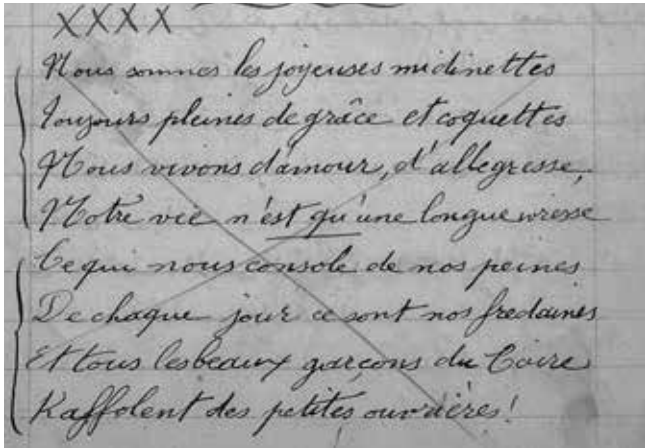 XXXX
Nous sommes les joyeuses midinettes
Toujours pleines de grâce et coquettes
Nous vivons d'amour, d'allegresse,
Notre vie n'est qu'une longue ivresse
Ce qui nous console de nos peines
De chaque jour ce sont nos fredaines
Et tous les beaux garçons du Caire
Raffolent des petites ouvrières!